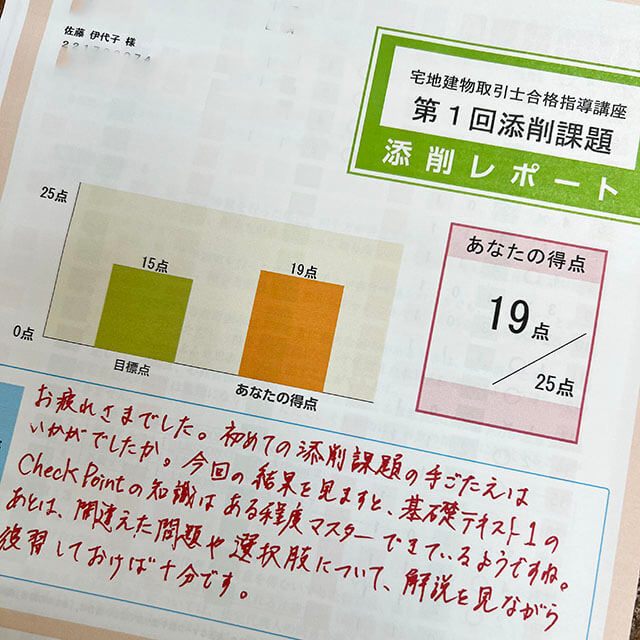 佐藤 伊代子 様
宅地建物取引士合格指導講座
第1回添削課題
添削レポート
25点
15点
19点
0点
目標点
あなたの得点
あなたの得点
19点
25点
お疲れさまでした。初めての添削課題の手ごたえは
いかがでしたか。今回の結果を見ますと、基礎テキスト1の
Check Pointの知識はある程度マスターできているようですね。
あとは、間違えた問題や選択肢について、解説を見ながら
復習しておけば十分です。